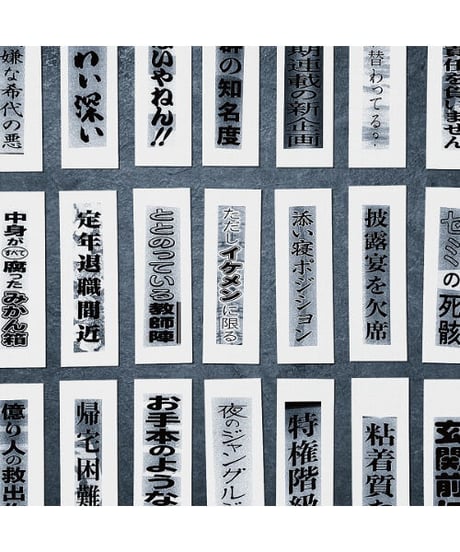 嫌な希代の悪
わい深い
いやねん!!
群の知名度
期連載の新企画
替わってる?
責任を負いません
中身がすべて腐ったみかん箱
定年退職間近
ととのっている教師陣
ただしイケメンに限る
添い寝ポジション
披露宴を欠席
セミの死骸
億り人の救出
帰宅困難
お手本のような
夜のジャングルジ
特権階級
粘着質な
玄関前に